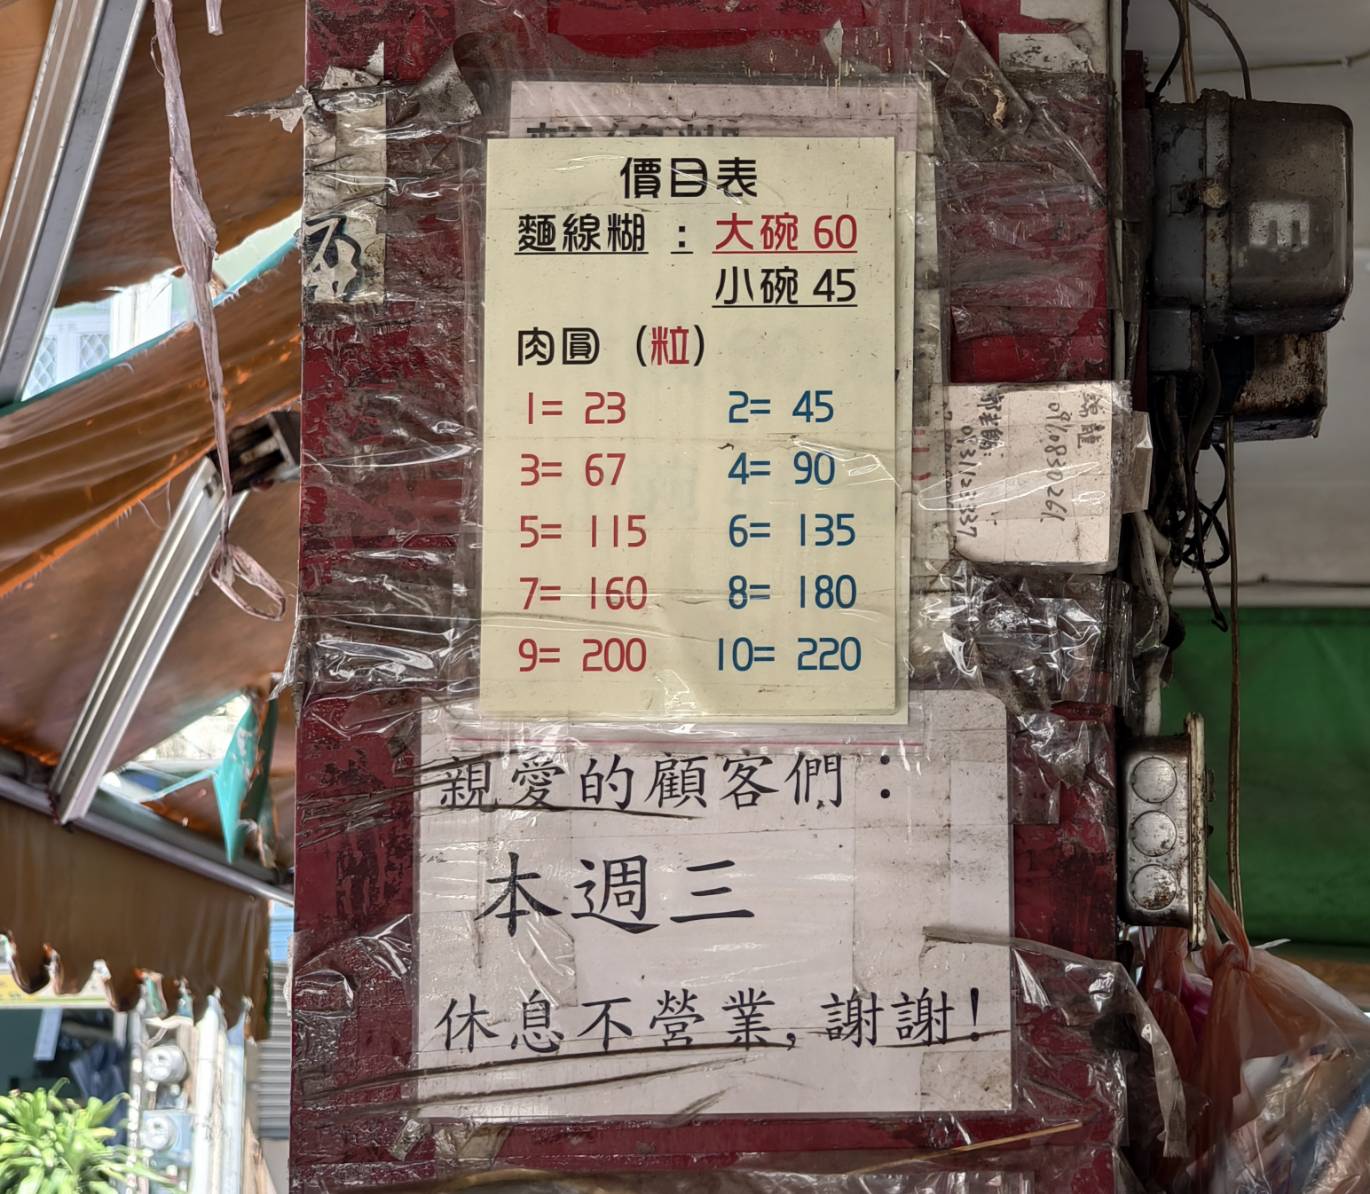 價目表
麵線糊：大碗 60
小碗 45
肉圓（粒）
1= 23 2= 45
3= 67 4= 90
5= 115 6= 135
7= 160 8= 180
9= 200 10= 220
親愛的顧客們：
本週三
休息不營業，謝謝！
E